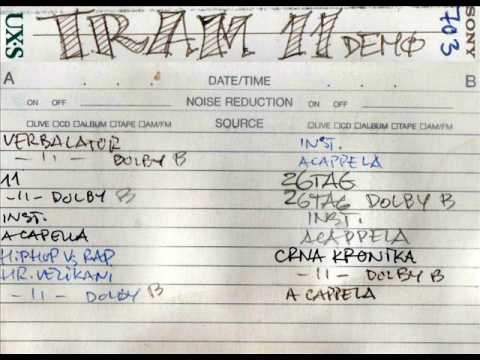 UX·S TRAM 11 DEMO 703 SONY
A DATE/TIME B
ON OFF NOISE REDUCTION ON OFF
□LIVE □CD □ALBUM □TAPE □AM/FM SOURCE □LIVE □CD □ALBUM □TAPE □AM/FM
VERBALATOR
-11- DOLBY B
11
-11- DOLBY B
INST.
ACAPELLA
HIPHOP VS RAP
HR. VELIKANI
-11- DOLBY B
INST.
ACAPPELA
26TAG
26TAG DOLBY B
INST.
ACAPPELA
CRNA KRONIKA
-11- DOLBY B
A CAPPELA